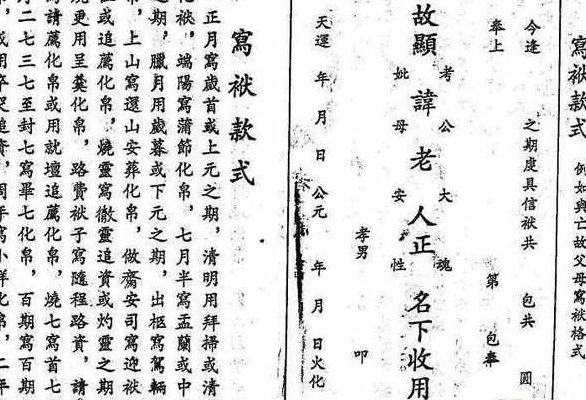 寫袱款式 例如與亡故父母寫袱格式
今逢 之期虔具信袱共 包共 圓
奉上 第 包奉
考 公 大 魂
故顯 諱 老 人正 名下收用
妣 母 安 性
孝男 叩
天運 年 月 日 公元 年 月 日火化
寫袱款式
正月寫歲首或上元之期，清明用拜掃或清
化袱，端陽寫蒲節化帛，七月半寫盂蘭或中
之期，臘月用歲暮或下元之期，出柩寫駕輛
帛，上山寫還山安葬化帛，做齋安司寫迎袱
或追薦化帛，燒靈寫徹靈追資或灼靈之期
燒更用呈奠化帛，路費袱子寫隨程路資，請
請薦化帛或用就壇追薦化帛，燒七寫首七
二七三七至封七寫畢七化帛，百期寫百期
或用卒哭追資，周年寫小祥化帛，二年